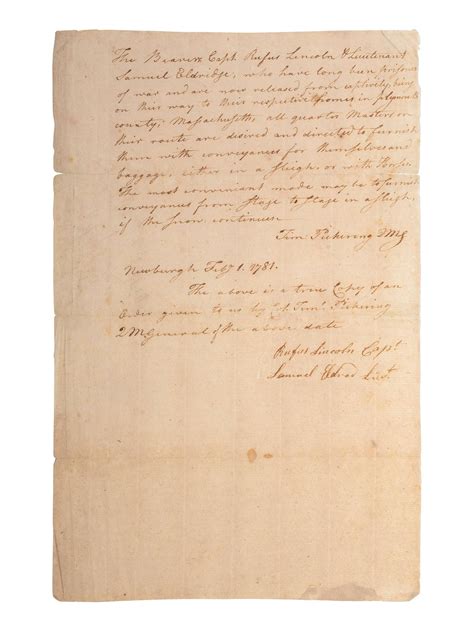 The Bearers Capt. Rufus Lincoln & Lieutenant
Samuel Eldridge, who have long been prisoners
of war and are now released from captivity, being
on their way to their respective homes in plymouth
county, Massachusetts, all quarter Masters on
their route are desired and directed to furnish
them with conveyances for themselves and
baggage, either in a sleigh, or with Horses
The most convenient mode may be to furnish
conveyances from stage to stage in a sleigh,
if the snow continues
Tim. Pickering QMG
Newburgh Feby 1. 1781.
The above is a true Copy of an
Order given to us by Col. Timy. Pickering
QMGeneral of the above date
Rufus Lincoln Capt
Samuel Lieut